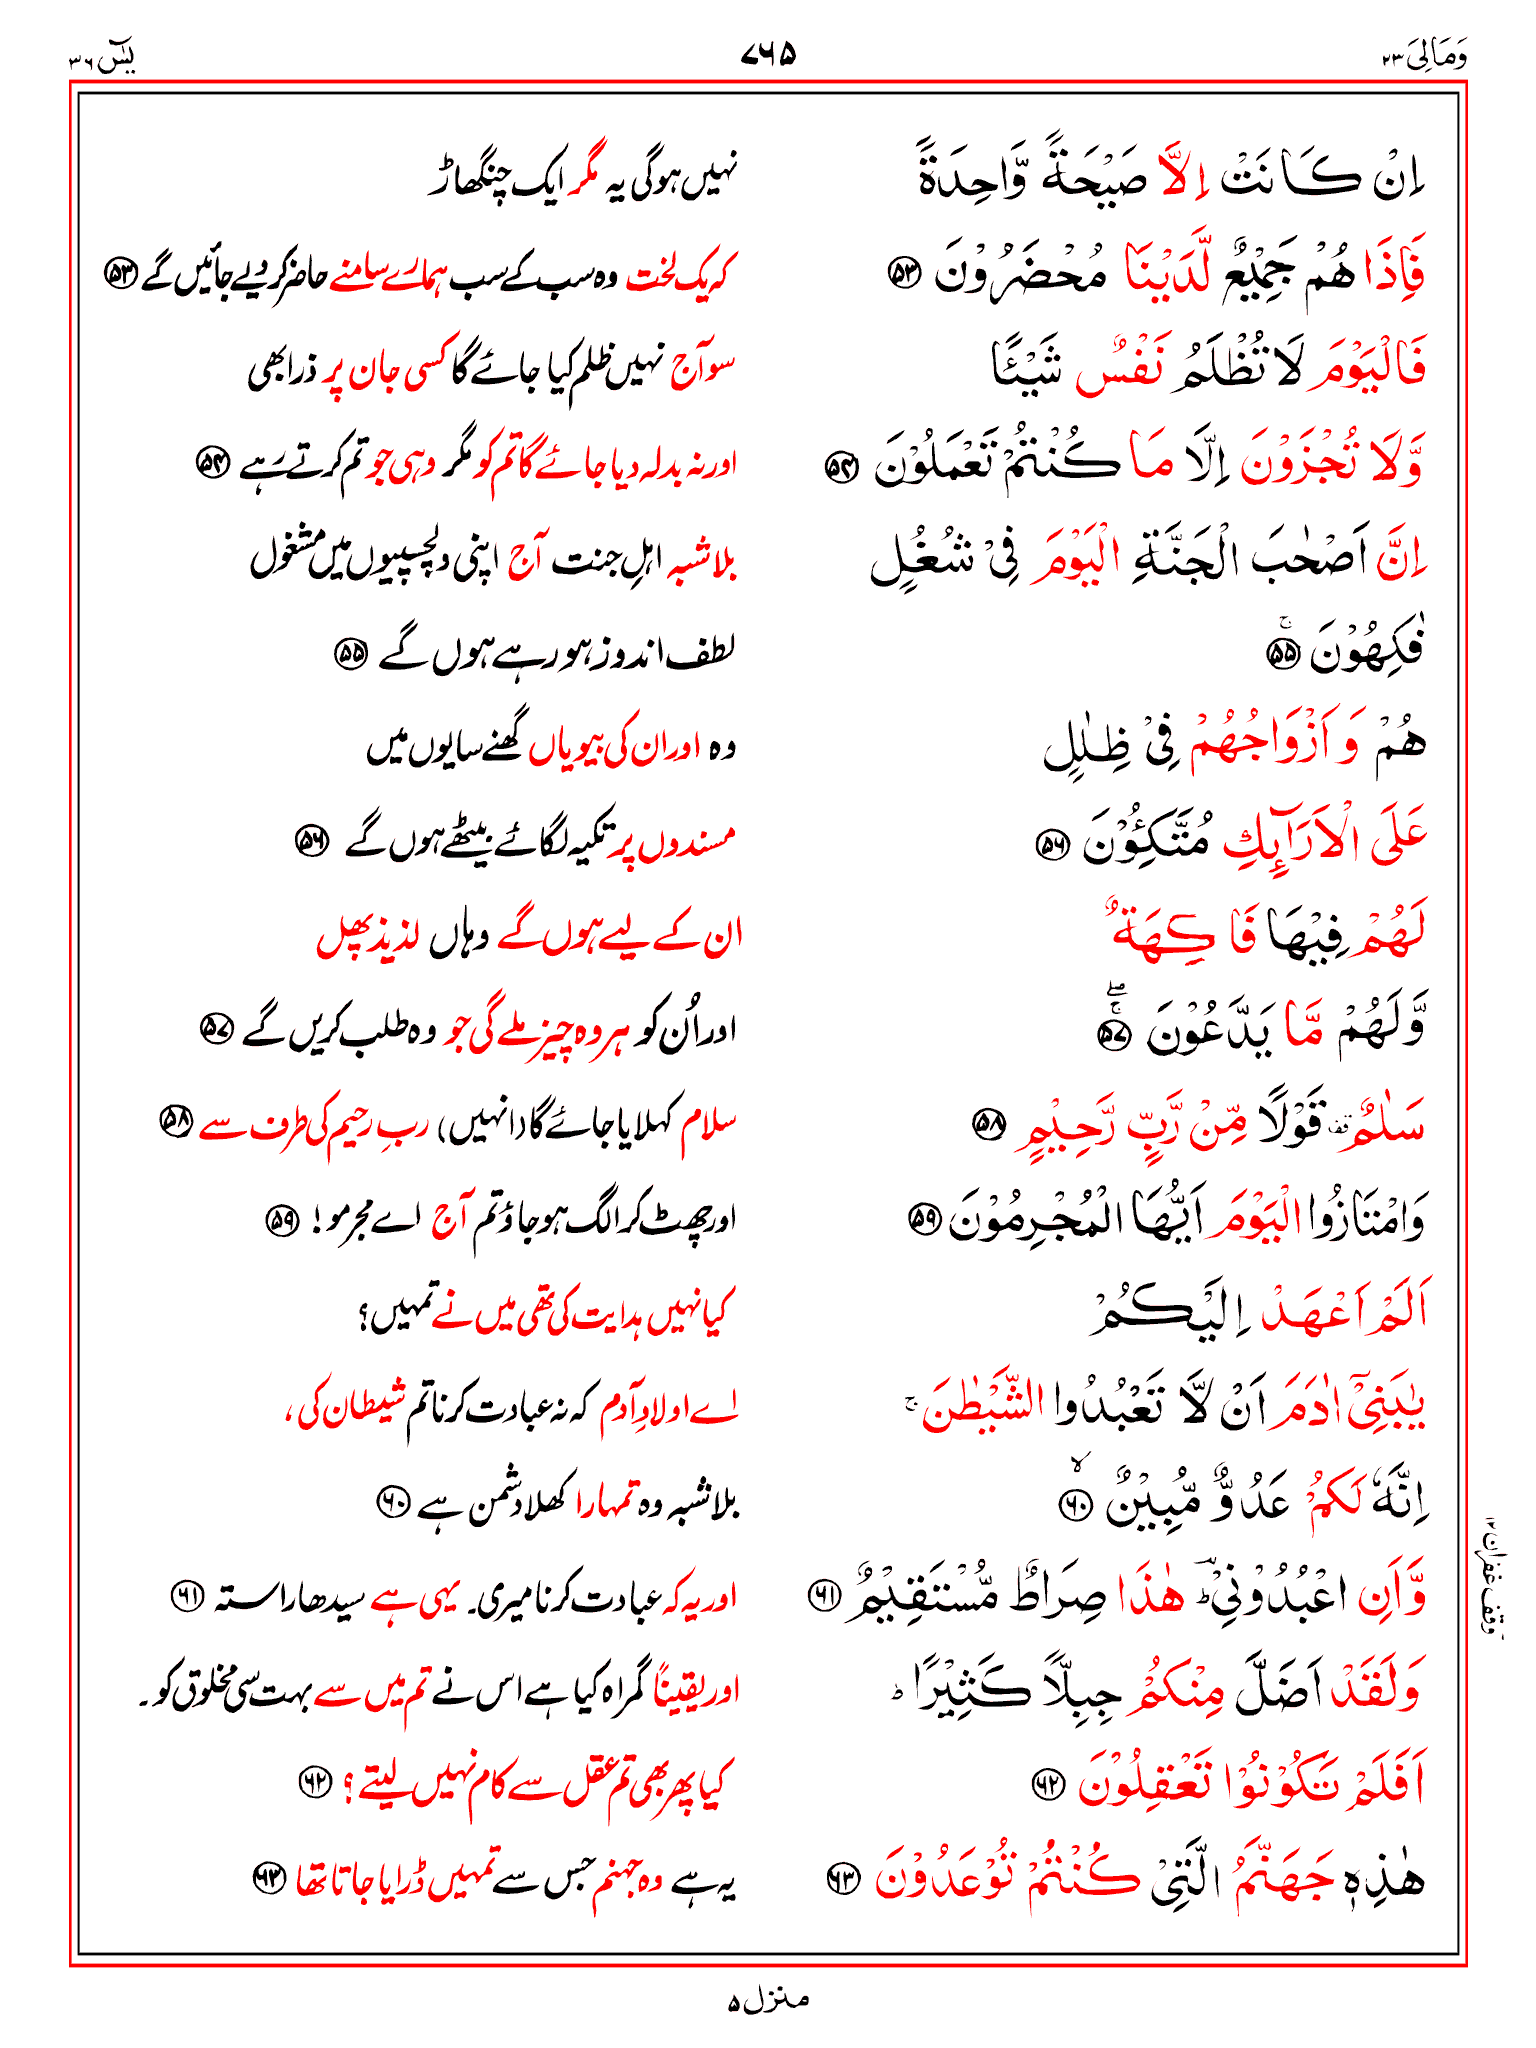 وَمَالِىَ ۲۳
۷۶۵
يٰسٓ ۳۶
اِنْ كَانَتْ اِلَّا صَيْحَةً وَّاحِدَةً
نہیں ہوگی یہ مگر ایک چنگھاڑ
فَاِذَا هُمْ جَمِيْعٌ لَّدَيْنَا مُحْضَرُوْنَ ۵۳
کہ یک لخت وہ سب کے سب ہمارے سامنے حاضر کر دیے جائیں گے ۵۳
فَالْيَوْمَ لَا تُظْلَمُ نَفْسٌ شَيْـًٔا
سو آج نہیں ظلم کیا جائے گا کسی جان پر ذرا بھی
وَّلَا تُجْزَوْنَ اِلَّا مَا كُنْتُمْ تَعْمَلُوْنَ ۵۴
اور نہ بدلہ دیا جائے گا تم کو مگر وہی جو تم کرتے رہے ۵۴
اِنَّ اَصْحٰبَ الْجَنَّةِ الْيَوْمَ فِىْ شُغُلٍ
بلاشبہ اہلِ جنت آج اپنی دلچسپیوں میں مشغول
فٰكِهُوْنَ ۚ ۵۵
لطف اندوز ہو رہے ہوں گے ۵۵
هُمْ وَاَزْوَاجُهُمْ فِىْ ظِلٰلٍ
وہ اور ان کی بیویاں گھنے سایوں میں
عَلَى الْاَرَآئِكِ مُتَّكِـُٔوْنَ ۵۶
مسندوں پر تکیہ لگائے بیٹھے ہوں گے ۵۶
لَهُمْ فِيْهَا فَاكِهَةٌ
ان کے لیے ہوں گے وہاں لذیذ پھل
وَّلَهُمْ مَّا يَدَّعُوْنَ ۚۖ ۵۷
اور اُن کو ہر وہ چیز ملے گی جو وہ طلب کریں گے ۵۷
سَلٰمٌ قف قَوْلًا مِّنْ رَّبٍّ رَّحِيْمٍ ۵۸
سلام کہلایا جائے گا (انہیں) ربِ رحیم کی طرف سے ۵۸
وَامْتَازُوا الْيَوْمَ اَيُّهَا الْمُجْرِمُوْنَ ۵۹
اور چھٹ کر الگ ہو جاؤ تم آج اے مجرمو! ۵۹
اَلَمْ اَعْهَدْ اِلَيْكُمْ
کیا نہیں ہدایت کی تھی میں نے تمہیں؟
يٰبَنِىْٓ اٰدَمَ اَنْ لَّا تَعْبُدُوا الشَّيْطٰنَ ۚ
اے اولادِ آدم کہ نہ عبادت کرنا تم شیطان کی،
اِنَّهٗ لَكُمْ عَدُوٌّ مُّبِيْنٌ ۙ ۶۰
بلاشبہ وہ تمہارا کھلا دشمن ہے ۶۰
وَّاَنِ اعْبُدُوْنِىْ ؕ هٰذَا صِرَاطٌ مُّسْتَقِيْمٌ ۶۱
اور یہ کہ عبادت کرنا میری۔ یہی ہے سیدھا راستہ ۶۱
وقف غفران ۱۲
وَلَقَدْ اَضَلَّ مِنْكُمْ جِبِلًّا كَثِيْرًا ؕ
اور یقیناً گمراہ کیا ہے اس نے تم میں سے بہت سی مخلوق کو۔
اَفَلَمْ تَكُوْنُوْا تَعْقِلُوْنَ ۶۲
کیا پھر بھی تم عقل سے کام نہیں لیتے؟ ۶۲
هٰذِهٖ جَهَنَّمُ الَّتِىْ كُنْتُمْ تُوْعَدُوْنَ ۶۳
یہ ہے وہ جہنم جس سے تمہیں ڈرایا جاتا تھا ۶۳
منزل ۵